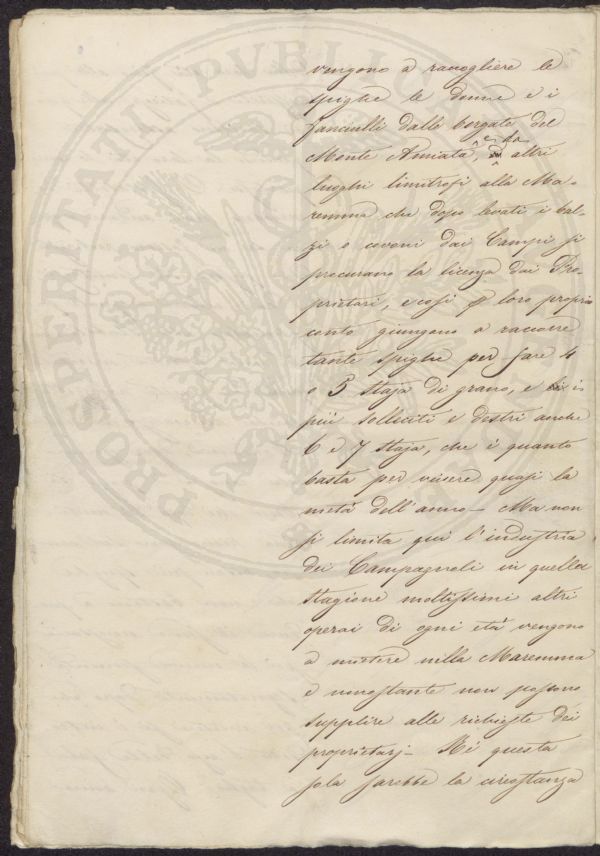 vengono a raccogliere le
spighe le donne e i
fanciulli dalle borgate del
Monte Amiata, e da altri
luoghi limitrofi alla Ma-
remma che dopo levati i bal-
zi o covoni dai Campi si
procurano la licenza dai Pro-
prietarj, e così p loro proprio
conto giungono a raccorre
tante spighe per fare 4
o 5 staja di grano, e i
più solleciti e destri anche
6 e 7 staja, che è quanto
basta per vivere quasi la
metà dell'anno - Ma non
si limita qui l'industria
dei Campagnoli in quella
stagione moltissimi altri
operai di ogni età vengono
a mietere nella Maremma
e nonostante non possono
supplire alle richieste dei
proprietarj - Nè questa
sola sarebbe la circostanza
PROSPERITATI PVBLICAE